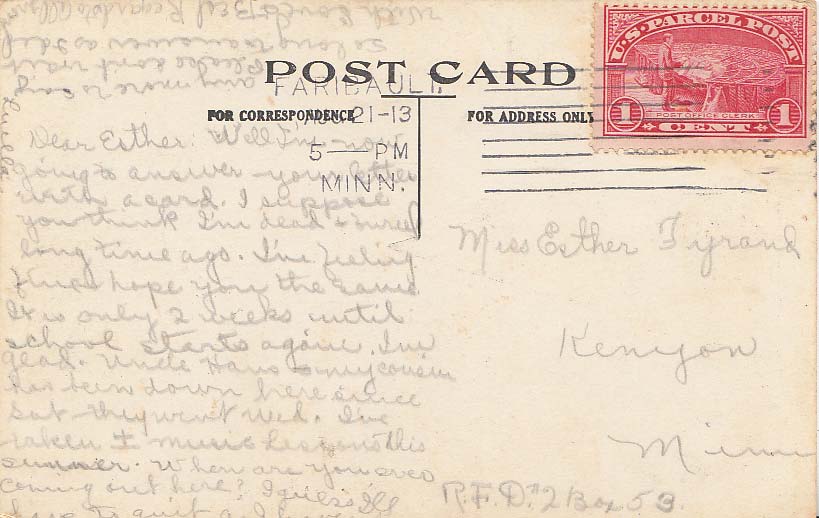 U.S. PARCEL POST
POST OFFICE CLERK
1 CENT 1
POST CARD
FARIBAULT.
21-13
5 — PM
MINN.
FOR CORRESPONDENCE
FOR ADDRESS ONLY
Dear Esther: Well I'm now
going to answer your letter
with a card. I suppose
you think I'm dead & buried
long time ago. I'm feeling
fine hope you the same
It is only 2 weeks until
school starts again. I'm
glad. Uncle Hans & my cousin
has been down here since
Sat they went Wed. I've
taken music lessons this
summer. When are you ever
coming out here? I guess I'll
have to quit
any more to say
Please don't wait
so long to answer as I del
With Love & Best Regards to all from
Luella
Miss Esther Fyrand
Kenyon
Minn
R.F.D. #2 Box 53.